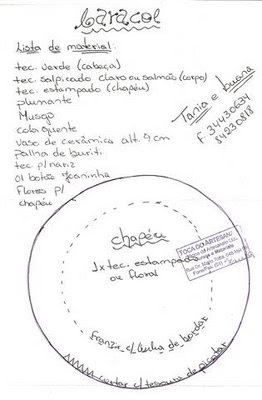 Caracol
Lista de material:
tec. verde (cabeça)
tec. salpicado claro ou salmão (corpo)
tec. estampado (chapéu)
plumante
Musgo
cola quente
vaso de cerâmica alt. 9 cm
palha de buriti
tec p/nariz
01 botão joaninha
Flores p/
chapéu
Tania e Busana
F. 34430634
84230818
chapéu
1x tec. estampado
ou floral
TOCA DO ARTESANATO
Franzir c/linha de bordar
cortar c/tesoura de picotar